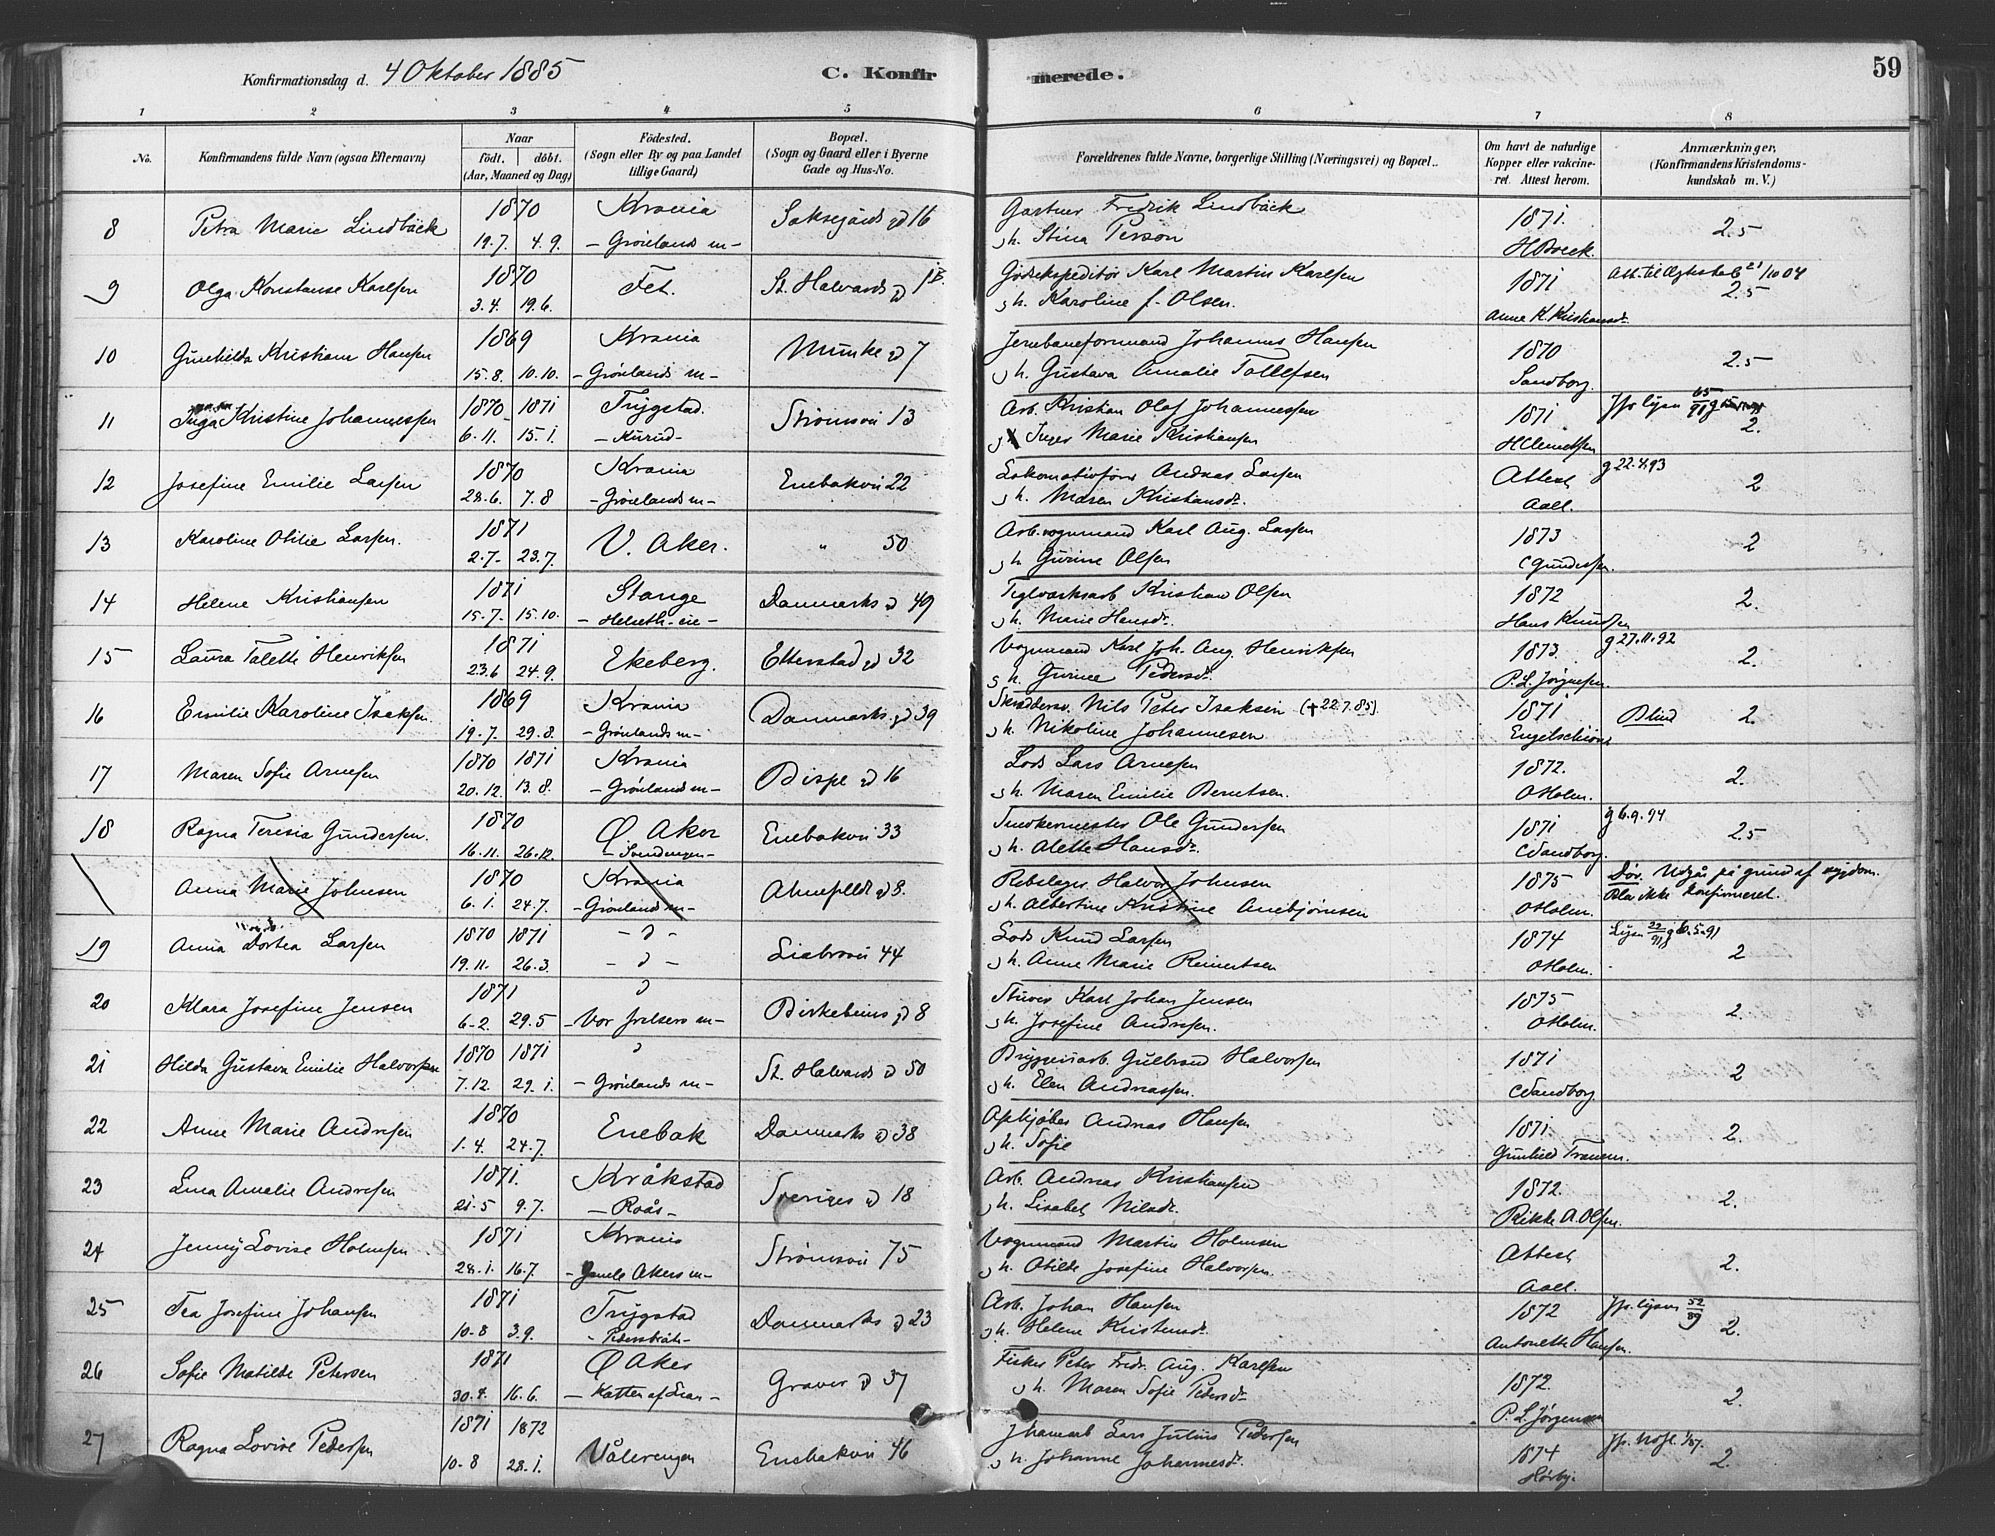 Konfirmationsdag d. 4 Oktober 1885
C. Konfir
merede.
59
1 2 3 4 5 6 7 8
No.
Konfirmandens fulde Navn (ogsaa Efternavn)
Naar
födt. döbt.
(Aar, Maaned og Dag)
Födested.
(Sogn eller By og paa Landet
tillige Gaard)
Bopæl.
(Sogn og Gaard eller i Byerne
Gade og Hus-No.
Forældrenes fulde Navne, borgerlige Stilling (Næringsvei) og Bopæl.
Om havt de naturlige
Kopper eller vakcine-
ret. Attest herom.
Anmærkninger,
(Konfirmandens Kristendoms-
kundskab m. V.)
8 Petra Marie Lindbäck 1870 Krania 16 Gartner Fredrik Lindbäck 1871.
19.7. 4.9. - Grönlands m- h. Stina Person HBoeck. 2.5
9 Olga Konstanse Karlsen 1870 Fet. St. Halvards 1B. Karl Martin Karlsen 1871
3.4. 19.6. h. Karoline f. Olsen. Anne K. Kristiansdr. 2.5
10 Gunhilda Kristiane Hansen 1869 Krania Munke 7 Jernbaneformand Johannes Hansen 1870
15.8. 10.10. - Grönlands m- h. Gustava Amalie Tollefsen Sandborg. 2.5
11 Inga Kristine Johannessen 1870 1871 Trygstad. Strömsvei 13 Arb. Kristian Olaf Johannessen 1871
6.11. 15.1. - Kurud- Inger Marie Kristiansen HClemetsen 2.
12 Josefine Emilie Larsen 1870 Krania Enebakvei 22 Lokomotivförer Andreas Larsen Attest g 22.4.93
28.6. 7.8 - Grönlands m- h. Maren Kristiansdr. Aall. 2
13 Karoline Otilie Larsen. 1871 V. Aker. " 50 Arb.vognmand Karl Aug. Larsen 1873
2.7. 23.7. h. Gurine Olsen CGundersen. 2
14 Helene Kristiansen 1871 Stange Danmarks 49 Teglværksarb Kristian Olsen 1872
15.7. 15.10. h. Marie Hansdr. Hans Knudsen 2.
15 Laura Talette Henriksen 1871 Ekeberg. Etterstad 32 Vognmand Karl Joh. Aug. Henriksen 1873. g 27.11.92
23.6 24.9. h. Gurine Pedersdr P. L. Jörgensen. 2.
16 Emilie Karoline Isaksen. 1869 Krania Danmarks 39 Nils Peter Isaksen (+22.7.85). 1871 Blind 2.
19.7. 29.8. - Grönlands m- h. Nikoline Johannesen
17 Maren Sofie Arnesen 1870 1871 Krania Bispe 16 Lods Lars Arnesen 1872.
20.12. 13.8. - Grönlands m- h. Maren Emilie Berntsen. OHolm. 2.
18 Ragna Teresia Gundersen. 1870 Ø Aker Enebakvei 33 Ole Gundersen 1871 g 6.9.94
16.11. 26.12. h. Alette Hansdr. CSandborg. 2.5
Anna Marie Johnsen 1870 Krania 8. Rebslager Halvor Johnsen 1875 Döv. Udgår på grund af sygdom.
6.1. 24.7. - Grönlands m- h. Albertine Kristine Anebjörnsen OHolm. Blev ikke konfirmeret.
19 Anna Dortea Larsen 1870 1871 Liabrovei 44 Lods Knud Larsen 1874
19.11. 26.3. h. Anne Marie Reinertsen OHolm. 2
20 Klara Josefine Jensen 1871 Birkebeins 8 Karl Johan Jensen 1875
6.2. 29.5 - Vor frelsers m- h. Josefine Andresen. OHolm. 2.
21 Hilda Gustava Emilie Halvorsen 1870 1871 St. Halvards 50 Bryggeriarb. Gulbrand Halvorsen 1871
7.12. 29.1. - Grönlands m- h. Elen Andreassen. CSandborg. 2
22 Anne Marie Andresen 1870 Enebak Danmarks 38 Opkjöber Andreas Hansen 1871
1.4. 24.7. h. Sofie Gunhild 2.
23 Lina Amalie Andresen 1871. Kråkstad Sveriges 18 Arb. Andreas Kristiansen 1872.
21.5 9.7. - Roås- h. Lisabet Nilsdr. Rikke A. Olsen. 2.
24 Jenny Lovise Holmsen 1871 Krania Strömsvei 75 Vognmand Martin Holmsen Attest
28.1. 16.7. - Gamle Akers m- h. Otilde Josefine Halvorsen. Aall. 2.
25 Tea Josefine Johansen 1871 Trygstad Danmarks 23 Arb. Johan Hansen 1872
10.8 3.9. h. Helene Kristensdr. Antonette Hansen. 2.
26 Sofie Matilde Petersen 1871 Ø Aker Graver 37 Fisker Peter Fredr. Aug. Karlsen 1872.
30.4. 16.6. h. Maren Sofie Pedersdr P. L. Jörgensen 2.
27 Ragna Lovise Pedersen 1871 1872 Vålerengen Enebakvei 46 Lars Julius Pedersen 1874
10.8 28.1. h. Johanne Johannesdr. 2.